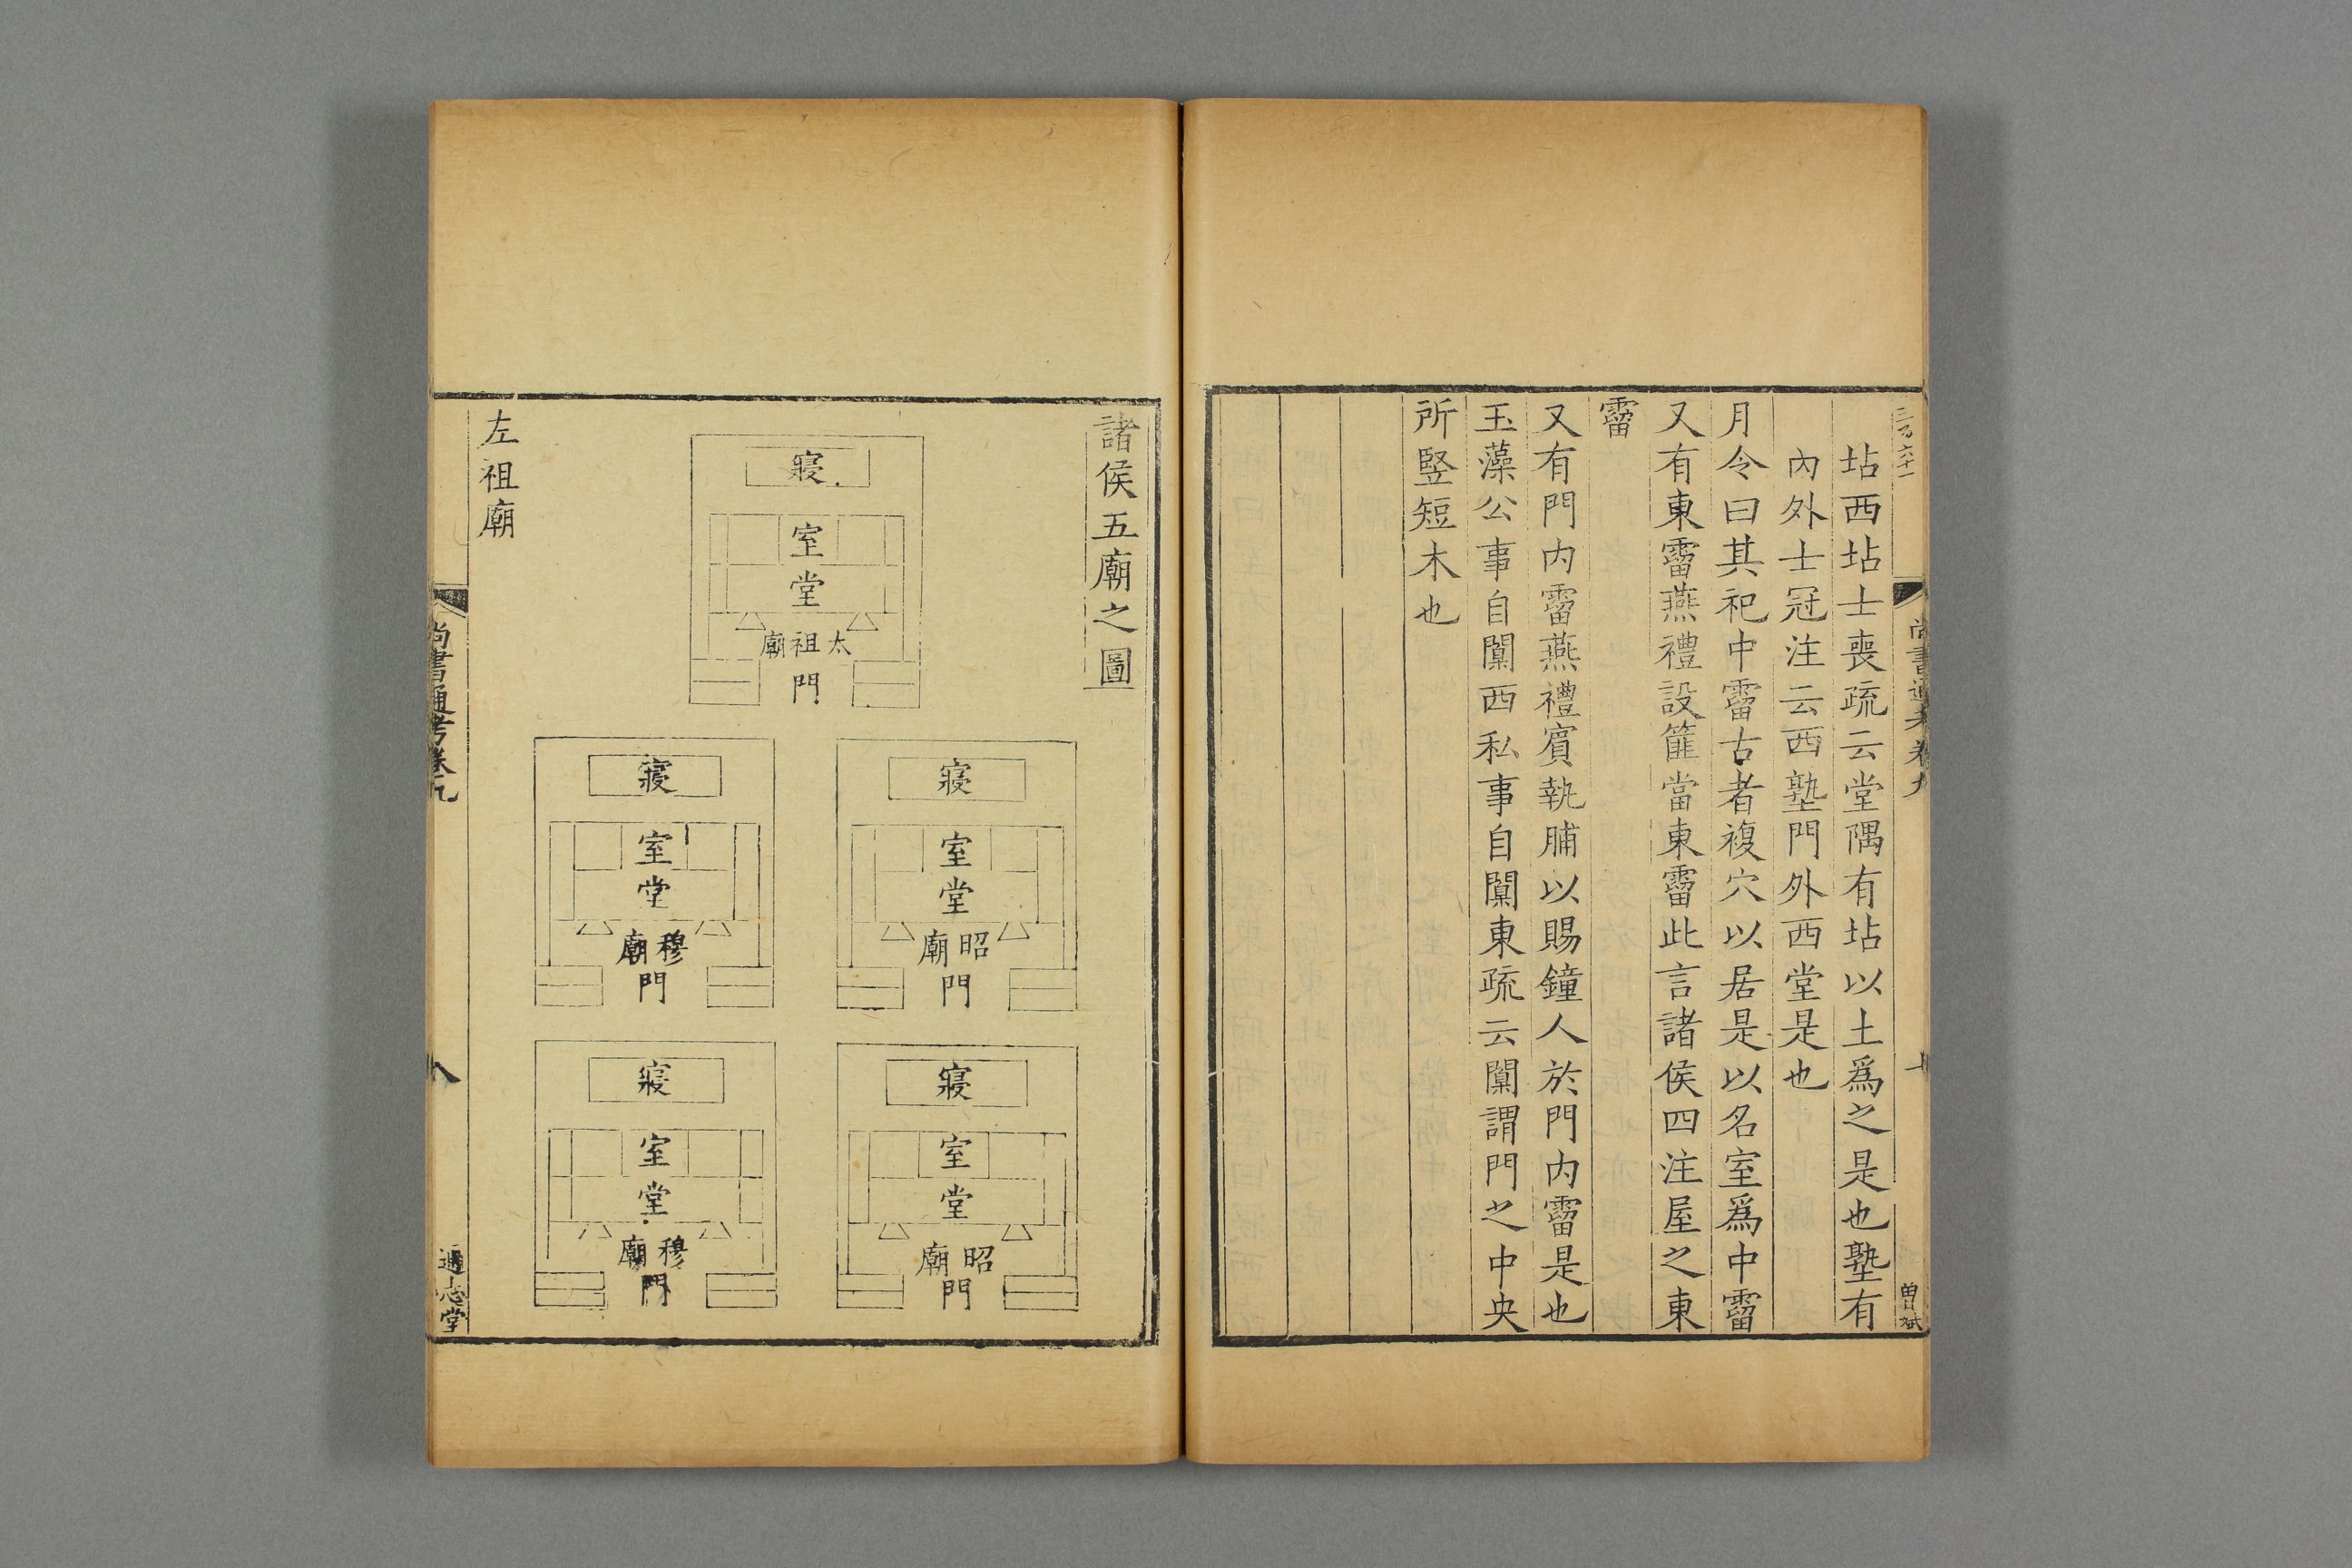 坫西坫士喪疏云堂隅有坫以土爲之是也塾有
內外士冠注云西塾門外西堂是也
月令曰其祀中霤古者複穴以居是以名室爲中霤
又有東霤燕禮設篚當東霤此言諸侯四注屋之東
霤
又有門內霤燕禮賓執脯以賜鐘人於門內霤是也
玉藻公事自闑西私事自闑東疏云闑謂門之中央
所竪短木也
尚書通考卷九
諸侯五廟之圖
寢
室
堂
太祖廟
門
寢
室
堂
昭廟
門
寢
室
堂
穆廟
門
寢
室
堂
昭廟
門
寢
室
堂
穆廟
門
左祖廟
尚書通考卷九
八
通志堂